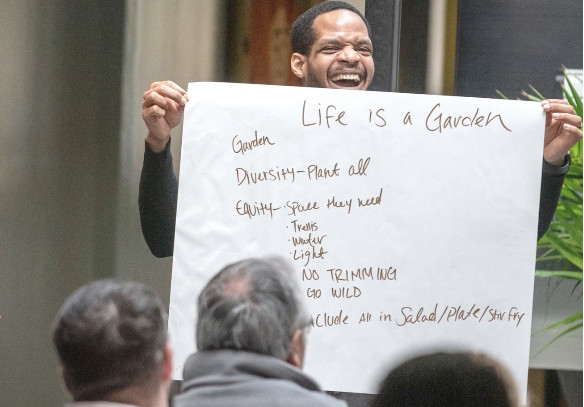 Life is a Garden
Garden
Diversity-Plant all
Equity-·Space they need
·Trellis
·Water
·Light
NO TRIMMING
GO WILD
clude All in Salad/Plate/Stir Fry